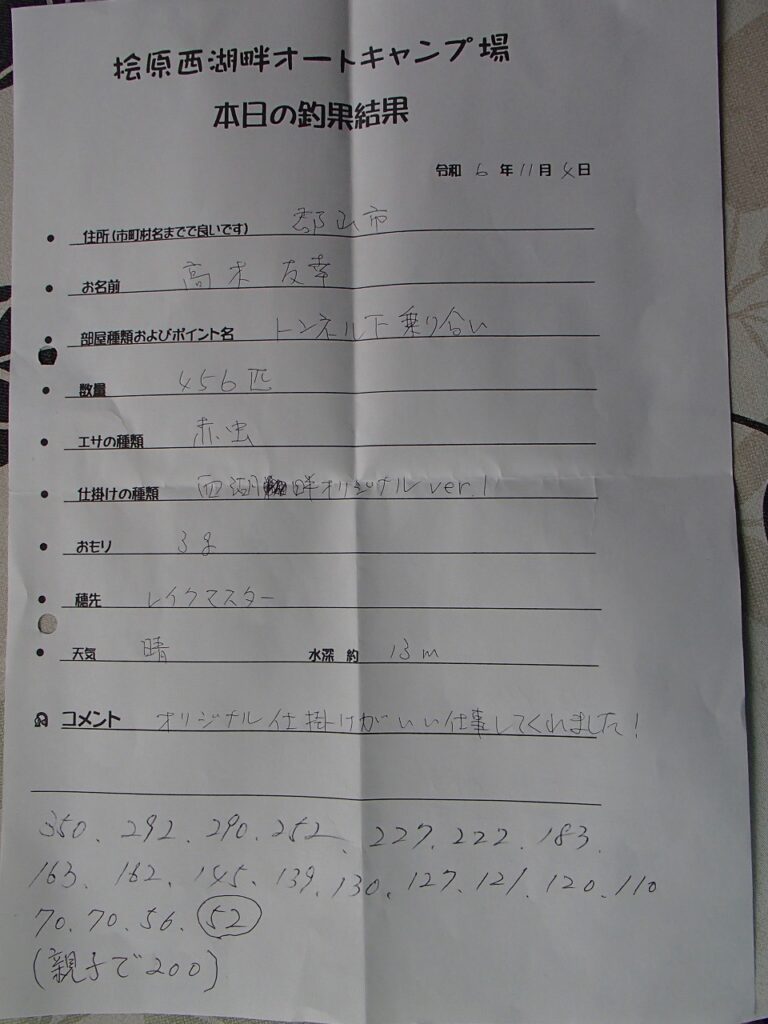 桧原西湖畔オートキャンプ場
本日の釣果結果
令和 6 年 11 月 4 日
住所(市町村名までで良いです) 郡山市
お名前 高木 友幸
部屋種類およびポイント名 トンネル下 乗り合い
数量 456匹
エサの種類 赤虫
仕掛けの種類 西湖畔オリジナル ver.1
おもり 3g
穂先 レイクマスター
天気 晴 水深 約 13m
コメント オリジナル仕掛けがいい仕事してくれました!
350. 292. 290. 252. 227. 222. 183.
163. 162. 145. 139. 130. 127. 121. 120. 110
70. 70. 56. 52
(親子で200)